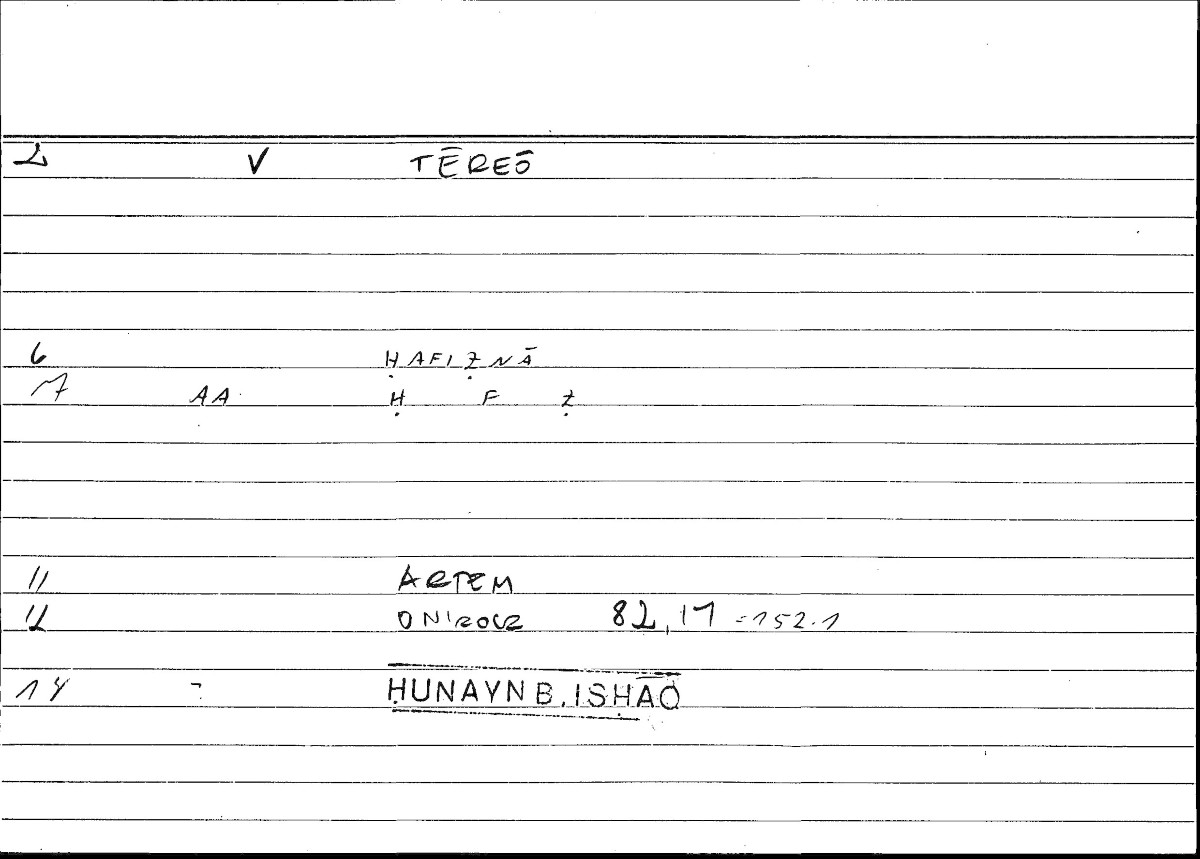 2 V TĒREŌ
6 ḤAFIẒNĀ
7 AA Ḥ F Ẓ
11 ARTEM
12 ONIROCR 82,17 =152.1
14 - ḤUNAYN B. ISḤĀQ